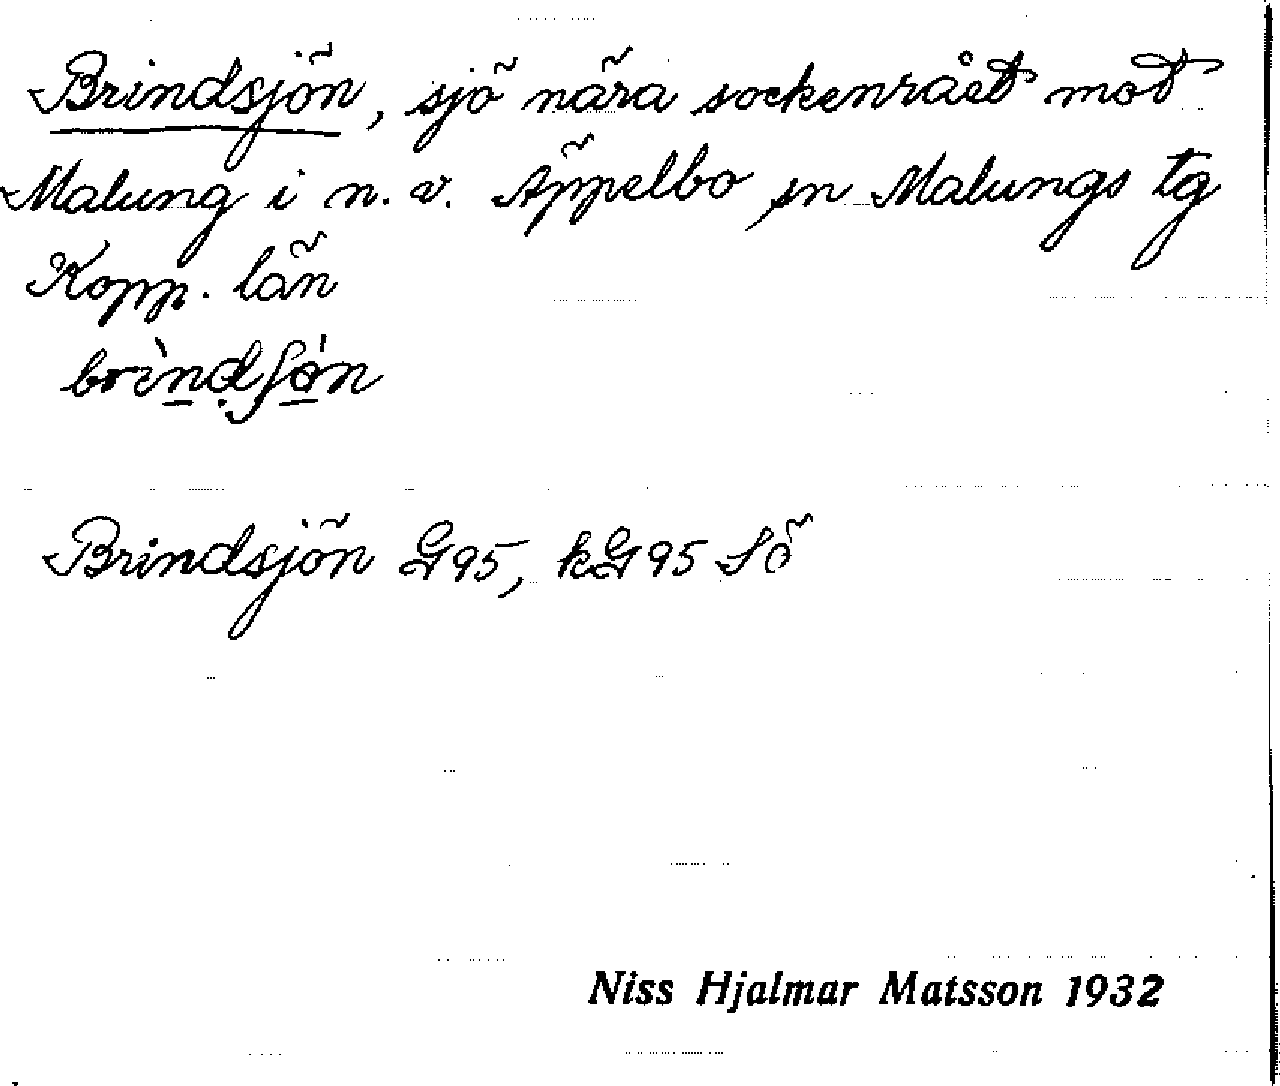 Brindsjön, sjö nära sockenrået mot
Malung i n. v. Äppelbo sn Malungs tg
Kopp. län
Brindsjön G95, kG95 Sö
Niss Hjalmar Matsson 1932